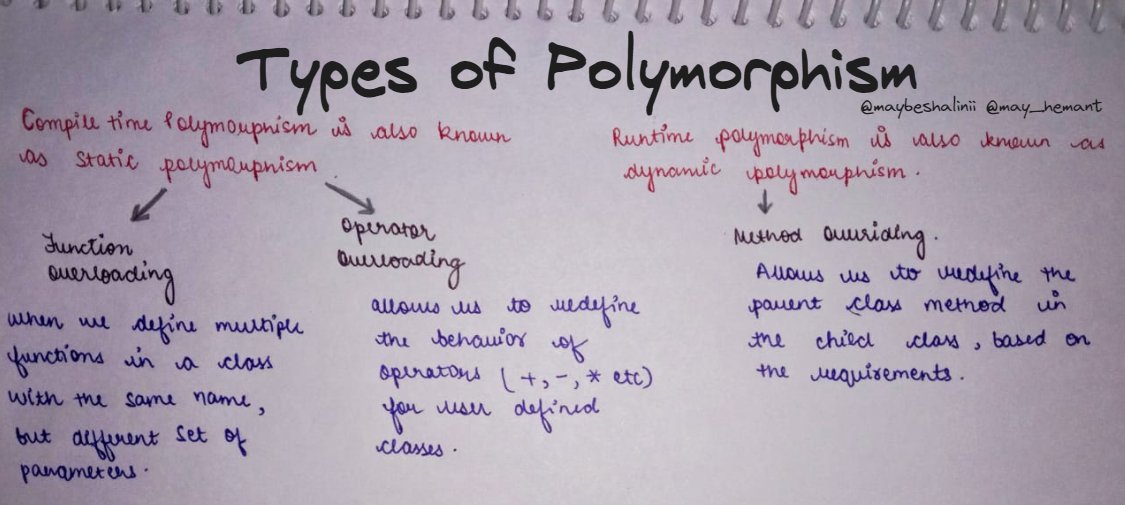 Types of Polymorphism
@maybeshalinii @may_hemant
Compile time Polymorphism is also known
as Static polymorphism
Function
overloading
when we define multiple
functions in a class
with the same name,
but different set of
parameters.
Operator
Overloading
allows us to redefine
the behavior of
operators (+, -, * etc)
for user defined
classes.
Runtime polymorphism is also known as
dynamic polymorphism.
Method overriding.
Allows us to redefine the
parent class method in
the child class, based on
the requirements.